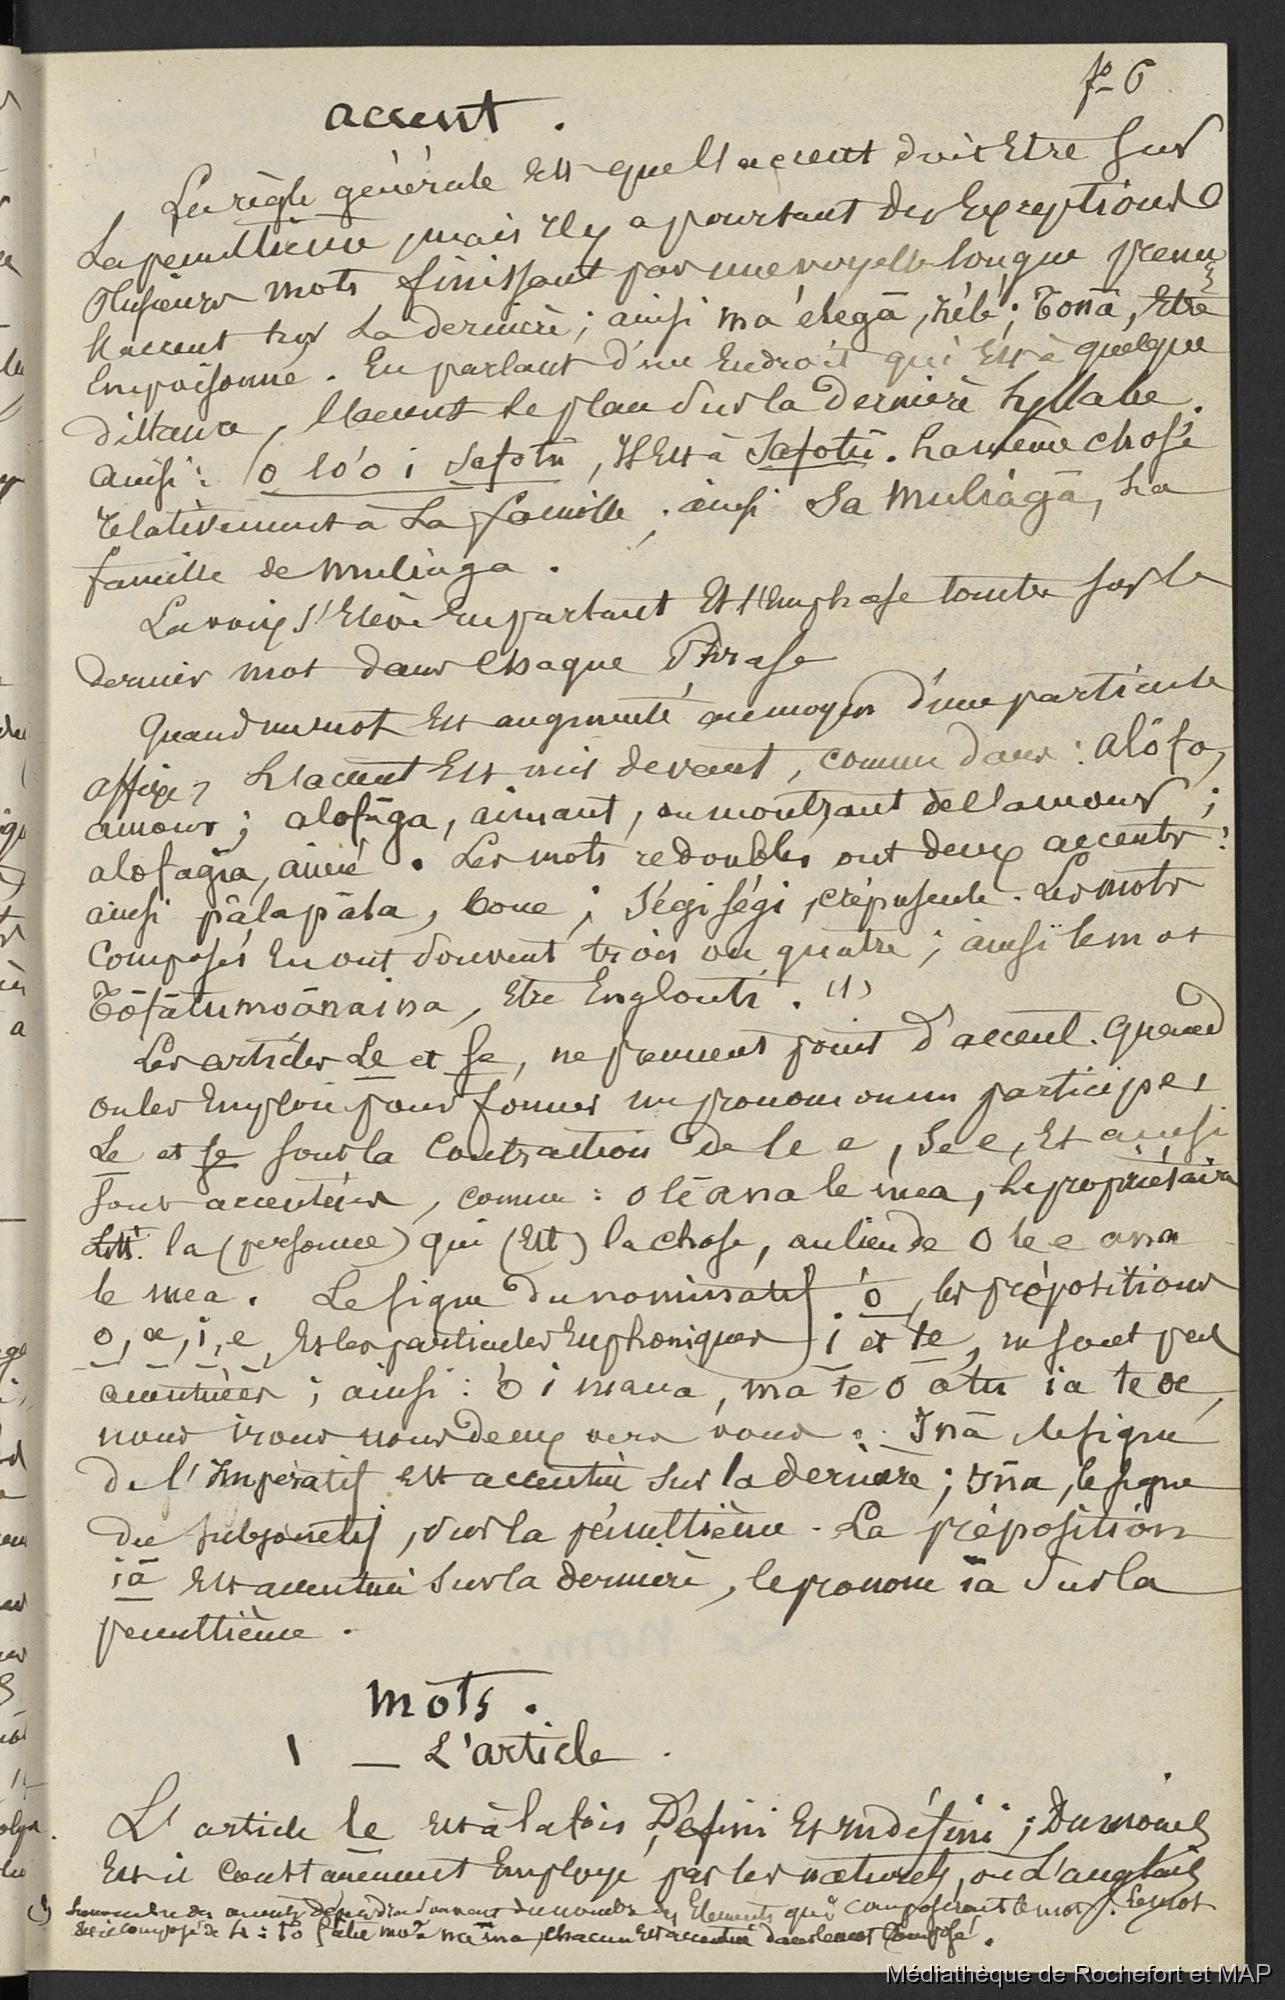 fo 6
accent.
La règle générale Est que l'accent doit Etre Sur
La penultième, mais Il y a pourtant des Exceptions
Plusieurs mots finissant par une voyelle longue prenn
l'accent sur la dernière ; ainsi ma élegā, ; Tonā, Etre
Empoisonné. En parlant d'un Endroit qui Est à quelque
distance, l'accent se place Sur la dernière Syllabe.
ainsi : o lo'o i Safotū, Il Est à Safotū. La même chose
relativement à La famille ; ainsi Sa Muliāgā, La
famille de muliaga.
La voix s'Elève En parlant Et l'Emphase tombe sur le
dernier mot dans Chaque Phrase
Quand un mot Est augmenté au moyen d'une particule
affixe, L'accent Est mis devant, comme dans : alōfa,
amour ; alofāga, aimant, ou montrant de l'amour ;
alofagīa, aimé. Les mots redoublés ont deux accents :
ainsi pālapāla, boue ; ségiségi, crépuscule. Les mots
Composés En ont Souvent trois ou quatre ; ainsi le mot
Tōfātumoānaina, Etre Englouti. (1)
Les articles Le et Se, ne prennent point d'accent. Quand
on les Emploie pour former un pronom ou un participe,
Le et se sont la Contraction de le e, se e, Et ainsi
sont accentués, comme : o lē ana le mea, Le propriétaire
Litt. la (personne) qui (Est) la chose, au lieu de O le e ana
le mea. Le signe du nominatif ó, les prépositions
o, a, i, e, Et les particules Euphoniques i et te, ne sont pas
accentuées ; ainsi : o i maua, ma te ō atu ia te oe,
nous irons nous deux vers vous. Inā, le signe
de l'Impératif est accentué Sur la dernière ; Ina, le signe
du subjonctif, Sur la pénultième. La préposition
iā Est accentuée Sur la dernière, le pronom ia Sur la
penultième.
Mots.
1 — L'article.
L'article le est à la fois Défini Et Indéfini ; Du moins
Est il Constamment Employé par les naturels, où L'anglais
(1) Le nombre des accents dépendra Souvent du nombre des Elements qui composeront le mot. Le mot
Est composé de 4 : to fatu moa na ina, chacun Est accentué dans le mot Composé.
Médiathèque de Rochefort et MAP